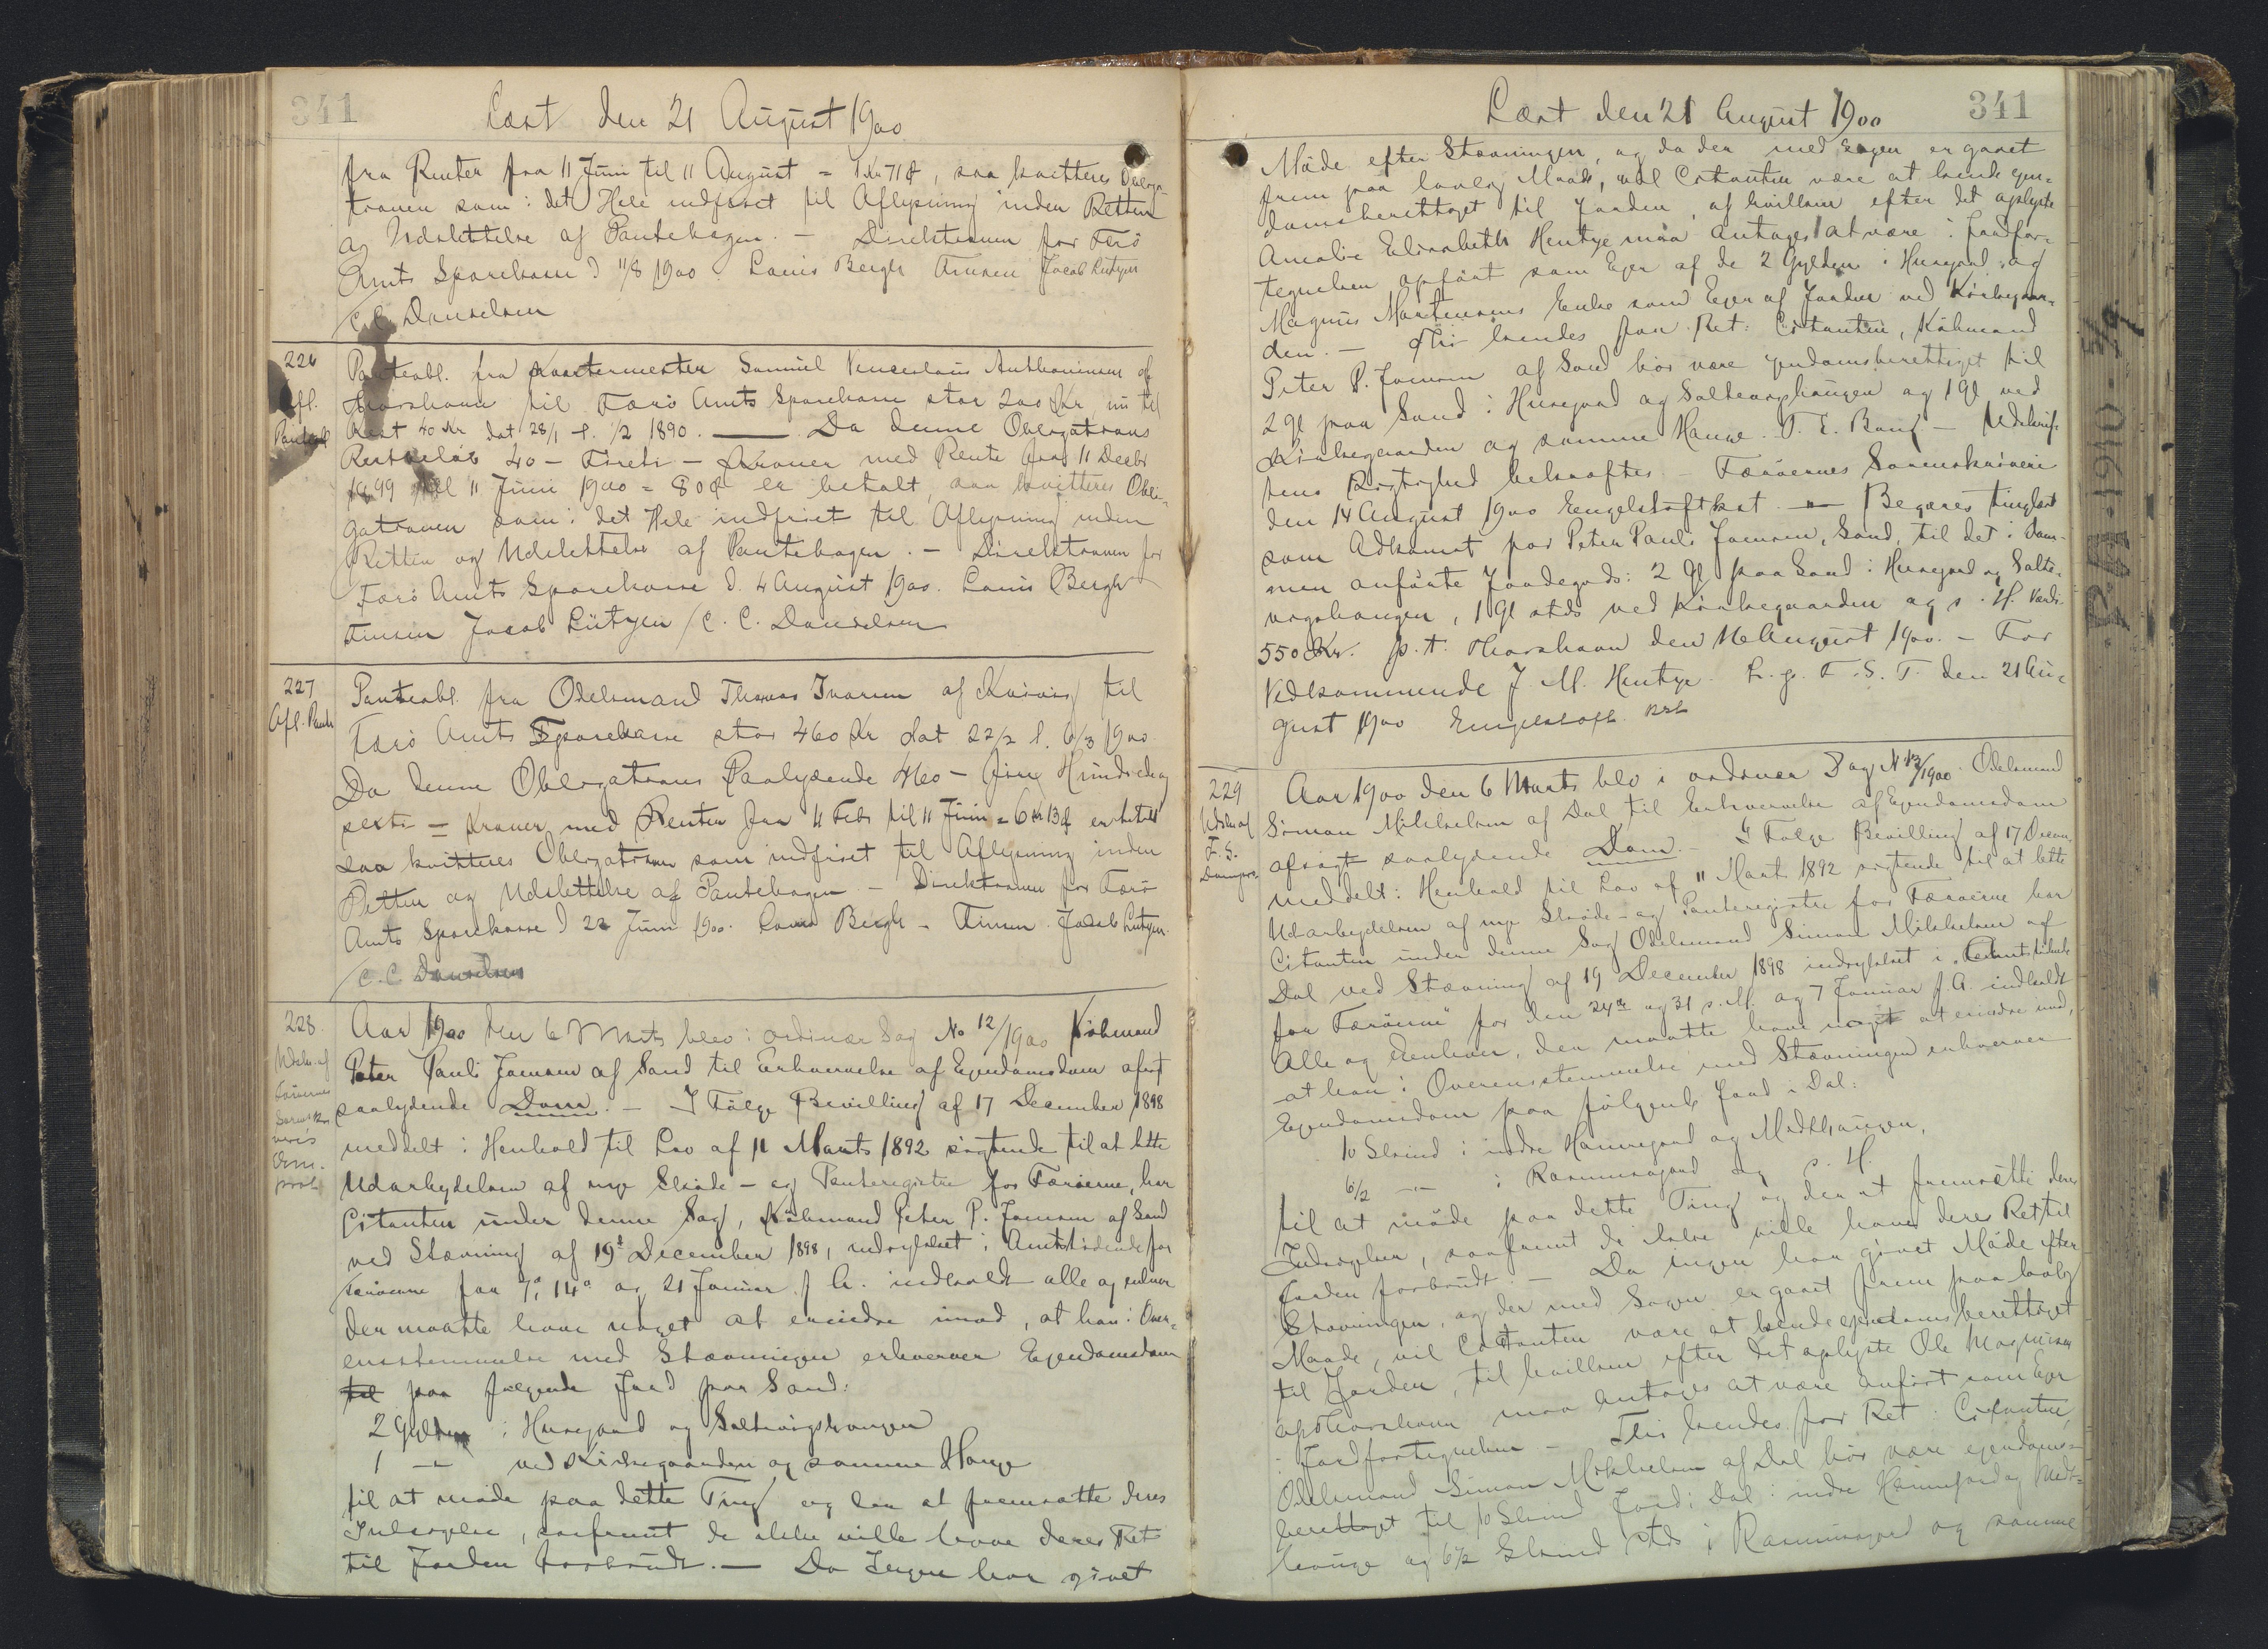 341
Læst den 21 August 1900
fra Renter fra 11 Juni til 11 August = 1 Kr 71 Ø, saa kvitteres Obliga-
tionen som i det Hele indfriet til Aflysning inden Retten
og Udslettelse af Pantebogen. – Direktionen for Færø
Amts Sparekasse d 11/8 1900 Louis Bergh Finsen Jacob Lützen
/C. C. Danielsen
226
Afl.
Panteobl
Panteobl. fra Kvartermester Samuel Venceslaus Anthoniussen af
Thorshavn til Færø Amts Sparekasse stor 200 Kr, nu til
Rest 40 Kr dat 28/1 l. 1/2 1890. — Da denne Obligations
Restbeløb 40 – Fireti – Kroner med Rente fra 11 Decbr
1899 til 11 Juni 1900 = 80 Ø er betalt, saa kvitteres Obli-
gationen som i det Hele indfriet til Aflysning inden
Retten og Udslettelse af Pantebogen. – Direktionen for
Færø Amts Sparekasse d. 4 August 1900. Louis Bergh
Finsen Jacob Lützen /C. C. Danielsen
227
Afl. Pantb
Panteobl. fra Odelsmand Thomas Ivarsen af Kvivig til
Færø Amts Sparekasse stor 460 Kr dat 22/2 l. 6/3 1900.
Da denne Obligations Paalydende 460 – fire Hundrede og
sexti – Kroner med Renter fra 11 Febr til 11 Juni = 6 Kr 13 Ø er betalt
saa kvitteres Obligationen som indfriet til Aflysning inden
Retten og Udslettelse af Pantebogen – Direktionen for Færø
Amts Sparekasse d 22 Juni 1900. Louis Bergh – Finsen. Jacob Lützen.
/C. C. Danielsen
228.
Udskr. af
Færøernes
Sorenskri
veris
Dom.
prot.
Aar 1900 den 6 Marts blev i ordinær Sag No 12/1900 Købmand
Peter Pauli Joensen af Sand til Erhvervelse af Ejendomsdom afsagt
saalydende Dom. – I Følge Bevilling af 17 December 1898
meddelt i Henhold til Lov af 11 Marts 1892 sigtende til at lette
Udarbejdelsen af nye Skøde- og Panteregistre for Færøerne, har
Citanten under denne Sag, Købmand Peter P. Joensen af Sand
ved Stævning af 19de December 1898, indrykket i Amtstidende for
Færøerne for 7de, 14de og 21 Januar f. A. indkaldt alle og enhver
der maatte have noget at erindre imod, at han i Over-
ensstemmelse med Stævningen erhverver Ejendomsdom
til paa følgende Jord paa Sand:
2 Gylden i Husegaard og Saltvigshaugen
1 –"– ved Kirkegaarden og samme Hauge
til at møde paa dette Ting og der at fremsætte deres
Indsigelse, saafremt de ikke ville have deres Ret
til Jorden forbrudt. — Da Ingen har givet
Læst den 21 August 1900
341
Møde efter Stævningen, og da der med Sagen er gaaet
frem paa lovlig Maade, vil Citanten være at kende ejen-
domsberettiget til Jorden, af hvilken efter det oplyste
Amalie Elisabeth Hentze maa antages at være i Jordfor-
tegnelsen opført som Ejer af de 2 Gylden i Husegaard og
Magnus Mortensens Enke som Ejer af Jorden ved Kirkegaar-
den. – Thi kendes for Ret: Citanten, Købmand
Peter P. Joensen af Sand bør være ejendomsberettiget til
2 Gl paa Sand i Husegaard og Saltvigshaugen og 1 Gl ved
Kirkegaarden og samme Hauge. T. E. Bang – Udskrif-
tens Rigtighed bekræftes – Færøernes Sorenskriveri
den 14 August 1900 Engelstoft kst. — Begæres tinglæst
som Adkomst for Peter Pauli Joensen, Sand, til det i Dom-
men anførte Jordegods: 2 Gl paa Sand i Husegaard og Salt-
vigshaugen, 1 Gl stds ved Kirkegaarden og s. H. Værdi
550 Kr. p. t. Thorshavn den 16 August 1900. – For
Vedkommende J. M. Hentze L. p. F. S. T. den 21 Au-
gust 1900 Engelstoft kst
229
Udskr af
F. S.
Domprot.
Aar 1900 den 6 Marts blev i ordinær Sag N 13/1900 Odelsmand
Simon Mikkelsen af Dal til Erhvervelse af Ejendomsdom
afsagt saalydende Dom. – I Følge Bevilling af 17 Decem.
meddelt i Henhold til Lov af 11 Marts 1892 sigtende til at lette
Udarbejdelsen af nye Skøde- og Panteregistre for Færøerne har
Citanten under denne Sag Odelsmand Simon Mikkelsen af
Dal ved Stævning af 19 December 1898 indrykket i "Amtstidende
for Færøerne" for den 24de og 31 s. M. og 7 Januar f. A. indkaldt
Alle og Enhver, der maatte have noget at erindre imod,
at han i Overensstemmelse med Stævningen erhverver
Ejendomsdom paa følgende Jord i Dal:
10 Skind i indre Hannegaard og Midthaugen,
6 1/2 –"– i Rasmusgaard og s. H.
til at møde paa dette Ting og der at fremsætte deres
Indsigelser, saafremt de ikke ville have deres Ret til
Jorden forbrudt. – Da ingen har givet Møde efter
Stævningen, og der med Sagen er gaaet frem paa lovlig
Maade, vil Citanten være at kende ejendomsberettiget
til Jorden, til hvilken efter det oplyste Ole Magnussen
af Thorshavn maa antages at være anført som Ejer
i Jordfortegnelsen – Thi kendes for Ret: Citanten,
Odelsmand Simon Mikkelsen af Dal bør være ejendoms-
berettiget til 10 Skind Jord i Dal i indre Hannegaard og Midt-
hauge og 6 1/2 Skind stds i Rasmusgaard og samme